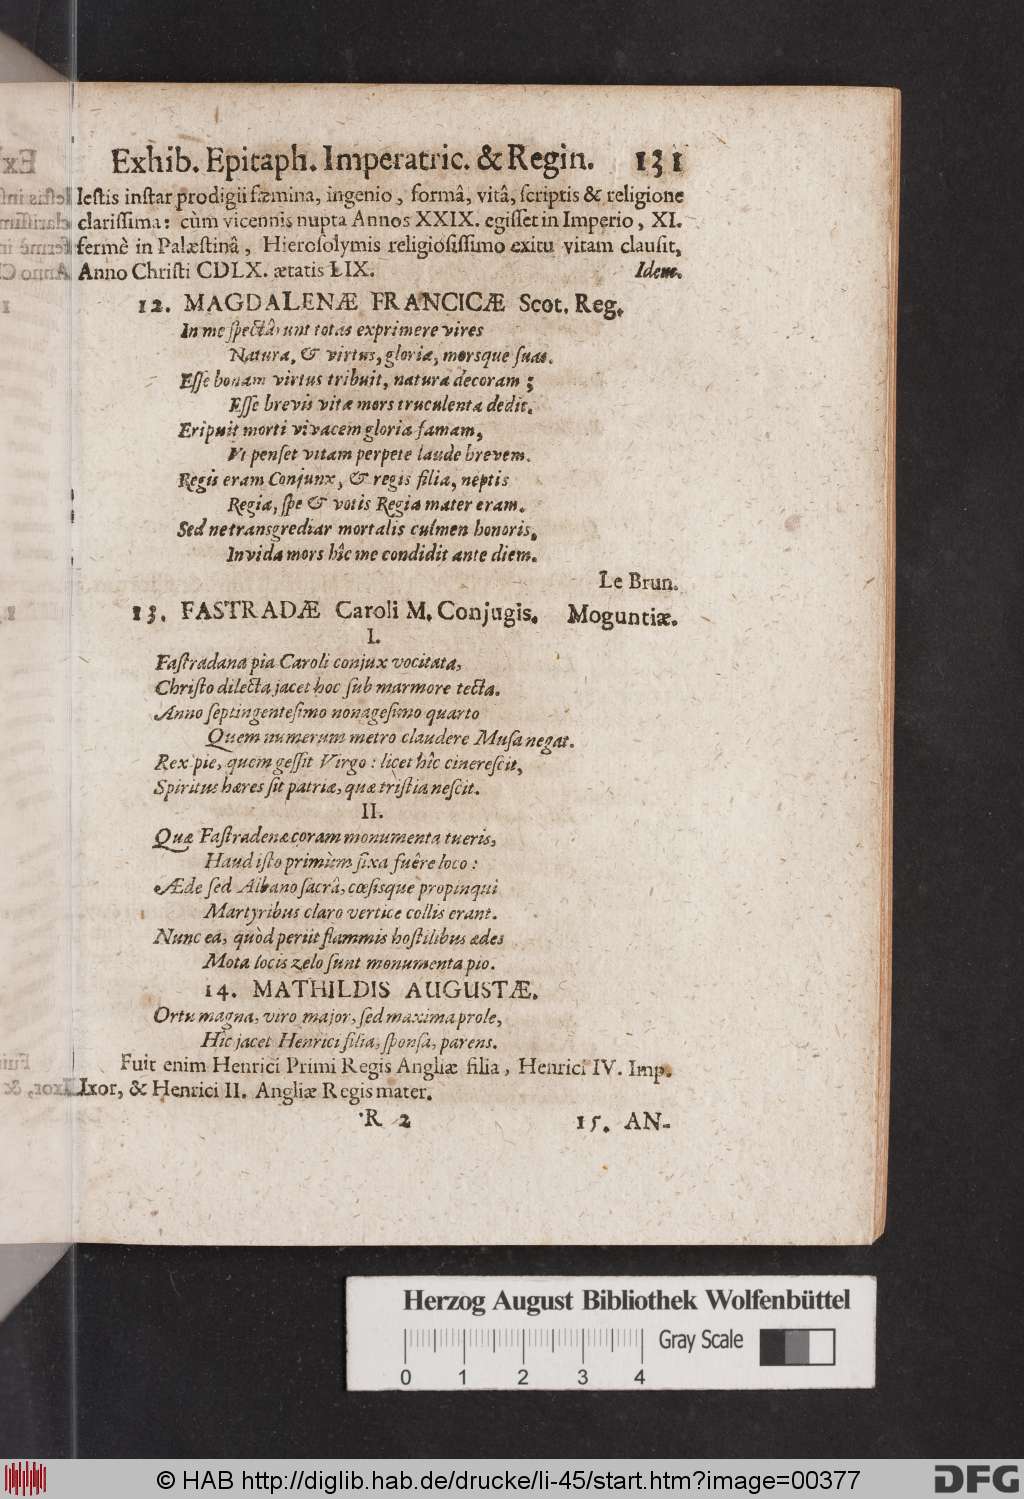 Exhib. Epitaph. Imperatric. & Regin. 131
lestis instar prodigii fæmina, ingenio, formâ, vitâ, scriptis & religione
clarissima: cùm vicennis nupta Annos XXIX. egisset in Imperio, XI.
fermè in Palæstinâ, Hierosolymis religiosissimo exitu vitam clausit,
Anno Christi CDLX. ætatis LIX. Idem.
12. MAGDALENÆ FRANCICÆ Scot. Reg.
In me spectârunt totas exprimere vires
Natura, & virtus, gloria, morsque suas.
Esse bonam virtus tribuit, natura decoram;
Esse brevis vitæ mors truculenta dedit.
Eripuit morti vivacem gloria famam,
Vt penset vitam perpete laude brevem.
Regis eram Conjunx, & regis filia, neptis
Regia, spe & votis Regia mater eram.
Sed ne transgrediar mortalis culmen honoris,
Invida mors hîc me condidit ante diem.
Le Brun.
13. FASTRADÆ Caroli M. Conjugis. Moguntiæ.
I.
Fastradana pia Caroli conjux vocitata,
Christo dilecta jacet hoc sub marmore tecta.
Anno septingentesimo nonagesimo quarto
Quem numerum metro claudere Musa negat.
Rex pie, quem gessit Virgo: licet hîc cinerescit,
Spiritus hæres sit patriæ, quæ tristia nescit.
II.
Quæ Fastradenæ coram monumenta tueris,
Haud isto primùm fixa fuêre loco:
Æde sed Albano sacrâ, cæsisque propinqui
Martyribus claro vertice collis erant.
Nunc ea, quòd periit flammis hostilibus ædes
Mota locis zelo sunt monumenta pio.
14. MATHILDIS AUGUSTÆ.
Ortu magna, viro major, sed maxima prole,
Hic jacet Henrici filia, sponsa, parens.
Fuit enim Henrici Primi Regis Angliæ filia, Henrici IV. Imp.
Uxor, & Henrici II. Angliæ Regis mater.
R 2 15. AN-
Herzog August Bibliothek Wolfenbüttel
Gray Scale
0 1 2 3 4
© HAB http://diglib.hab.de/drucke/li-45/start.htm?image=00377
DFG